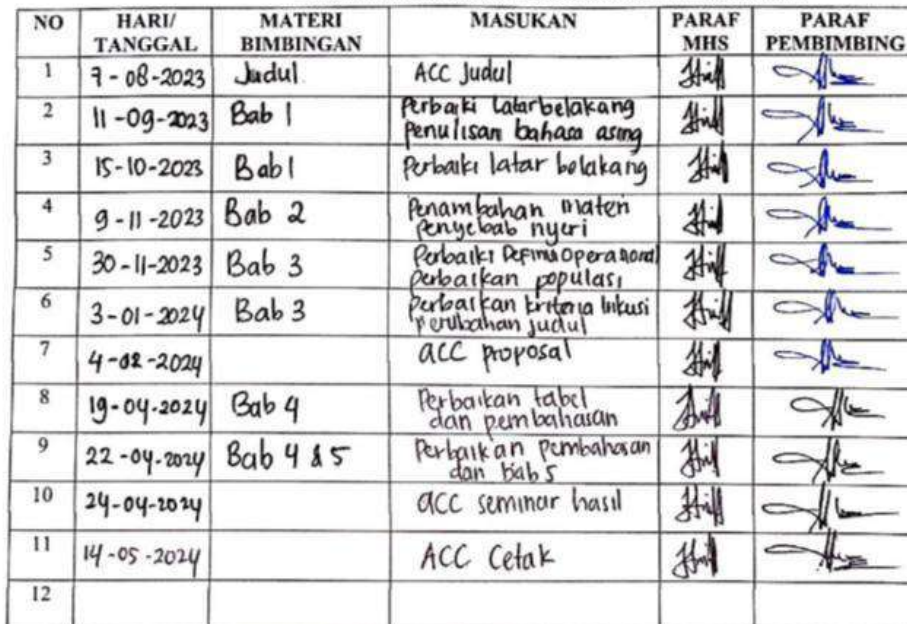 NO HARI/ MATERI MASUKAN PARAF PARAF
TANGGAL BIMBINGAN MHS PEMBIMBING
1 7-08-2023 Judul. ACC Judul
2 11-09-2023 Bab 1 Perbaiki latar belakang
penulisan bahasa asing
3 15-10-2023 Bab 1 Perbaiki latar belakang
4 9-11-2023 Bab 2 Penambahan materi
penyebab nyeri
5 30-11-2023 Bab 3 Perbaiki Operasional
perbaikan populasi
6 3-01-2024 Bab 3 perbaikan kriteria Inkusi
perubahan judul
7 4-02-2024 ACC proposal
8 19-04-2024 Bab 4 Perbaikan tabel
dan pembahasan
9 22-04-2024 Bab 4 & 5 Perbaikan pembahasan
dan bab 5
10 24-04-2024 ACC seminar hasil
11 14-05-2024 ACC Cetak
12